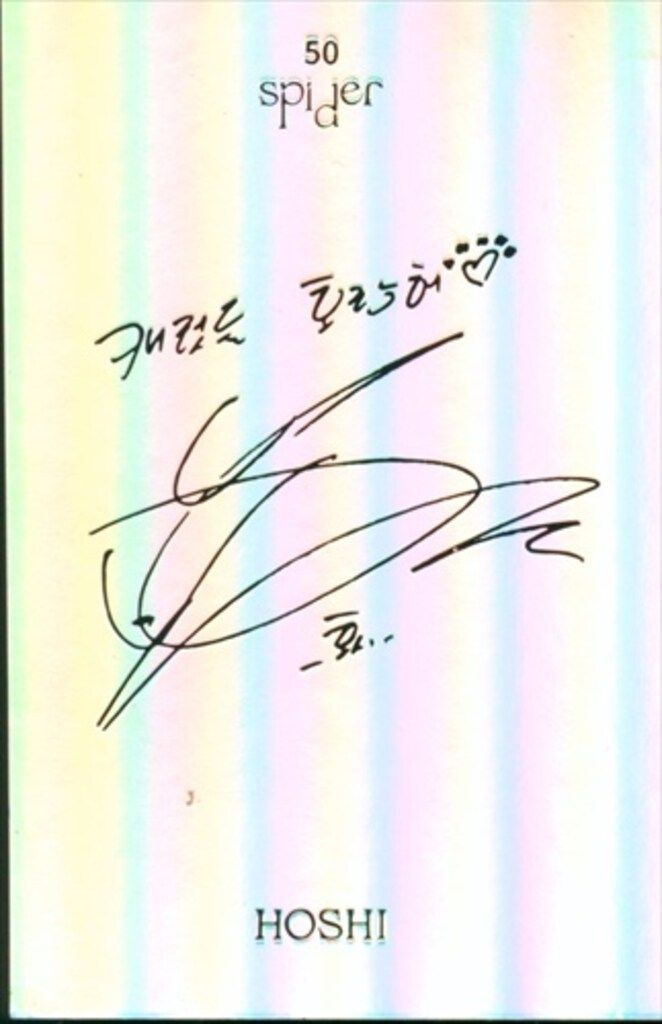 50
spider
캐럿들 호랑해
HOSHI